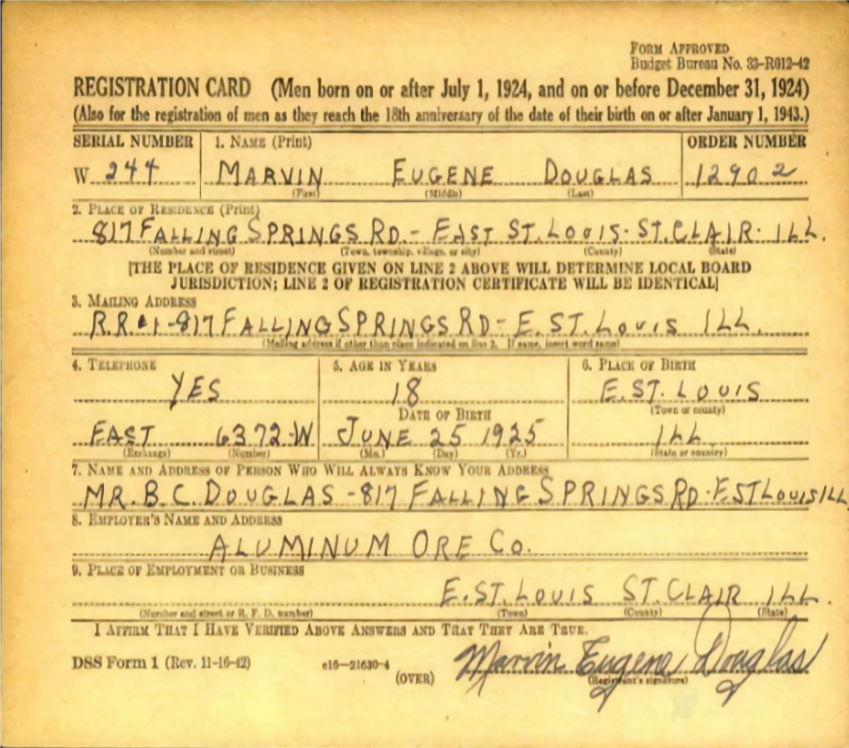 FORM APPROVED
Budget Bureau No. 33-R012-42
REGISTRATION CARD (Men born on or after July 1, 1924, and on or before December 31, 1924)
(Also for the registration of men as they reach the 18th anniversary of the date of their birth on or after January 1, 1943.)
SERIAL NUMBER 1. NAME (Print) ORDER NUMBER
W 244 MARVIN EUGENE DOUGLAS 12902
(First) (Middle) (Last)
2. PLACE OF RESIDENCE (Print)
817 FALLING SPRINGS RD.- EAST ST. LOUIS- ST. CLAIR- ILL.
(Number and street) (Town, township, village, or city) (County) (State)
[THE PLACE OF RESIDENCE GIVEN ON LINE 2 ABOVE WILL DETERMINE LOCAL BOARD
JURISDICTION; LINE 2 OF REGISTRATION CERTIFICATE WILL BE IDENTICAL]
3. MAILING ADDRESS
R.R. #1-817 FALLING SPRINGS RD- E. ST. LOUIS ILL.
(Mailing address if other than place indicated on line 2. If same, insert word same)
4. TELEPHONE 5. AGE IN YEARS 6. PLACE OF BIRTH
YES 18 E. ST. LOUIS
DATE OF BIRTH (Town or county)
EAST 6372-W JUNE 25 1925 ILL.
(Exchange) (Number) (Mo.) (Day) (Yr.) (State or country)
7. NAME AND ADDRESS OF PERSON WHO WILL ALWAYS KNOW YOUR ADDRESS
MR. B. C. DOUGLAS -817 FALLING SPRINGS RD- E ST LOUIS ILL
8. EMPLOYER'S NAME AND ADDRESS
ALUMINUM ORE CO.
9. PLACE OF EMPLOYMENT OR BUSINESS
E. ST. LOUIS ST. CLAIR ILL.
(Number and street or R. F. D. number) (Town) (County) (State)
I AFFIRM THAT I HAVE VERIFIED ABOVE ANSWERS AND THAT THEY ARE TRUE.
DSS Form 1 (Rev. 11-16-42) e16—21630-4 (OVER) Marvin Eugene Douglas
(Registrant's signature)